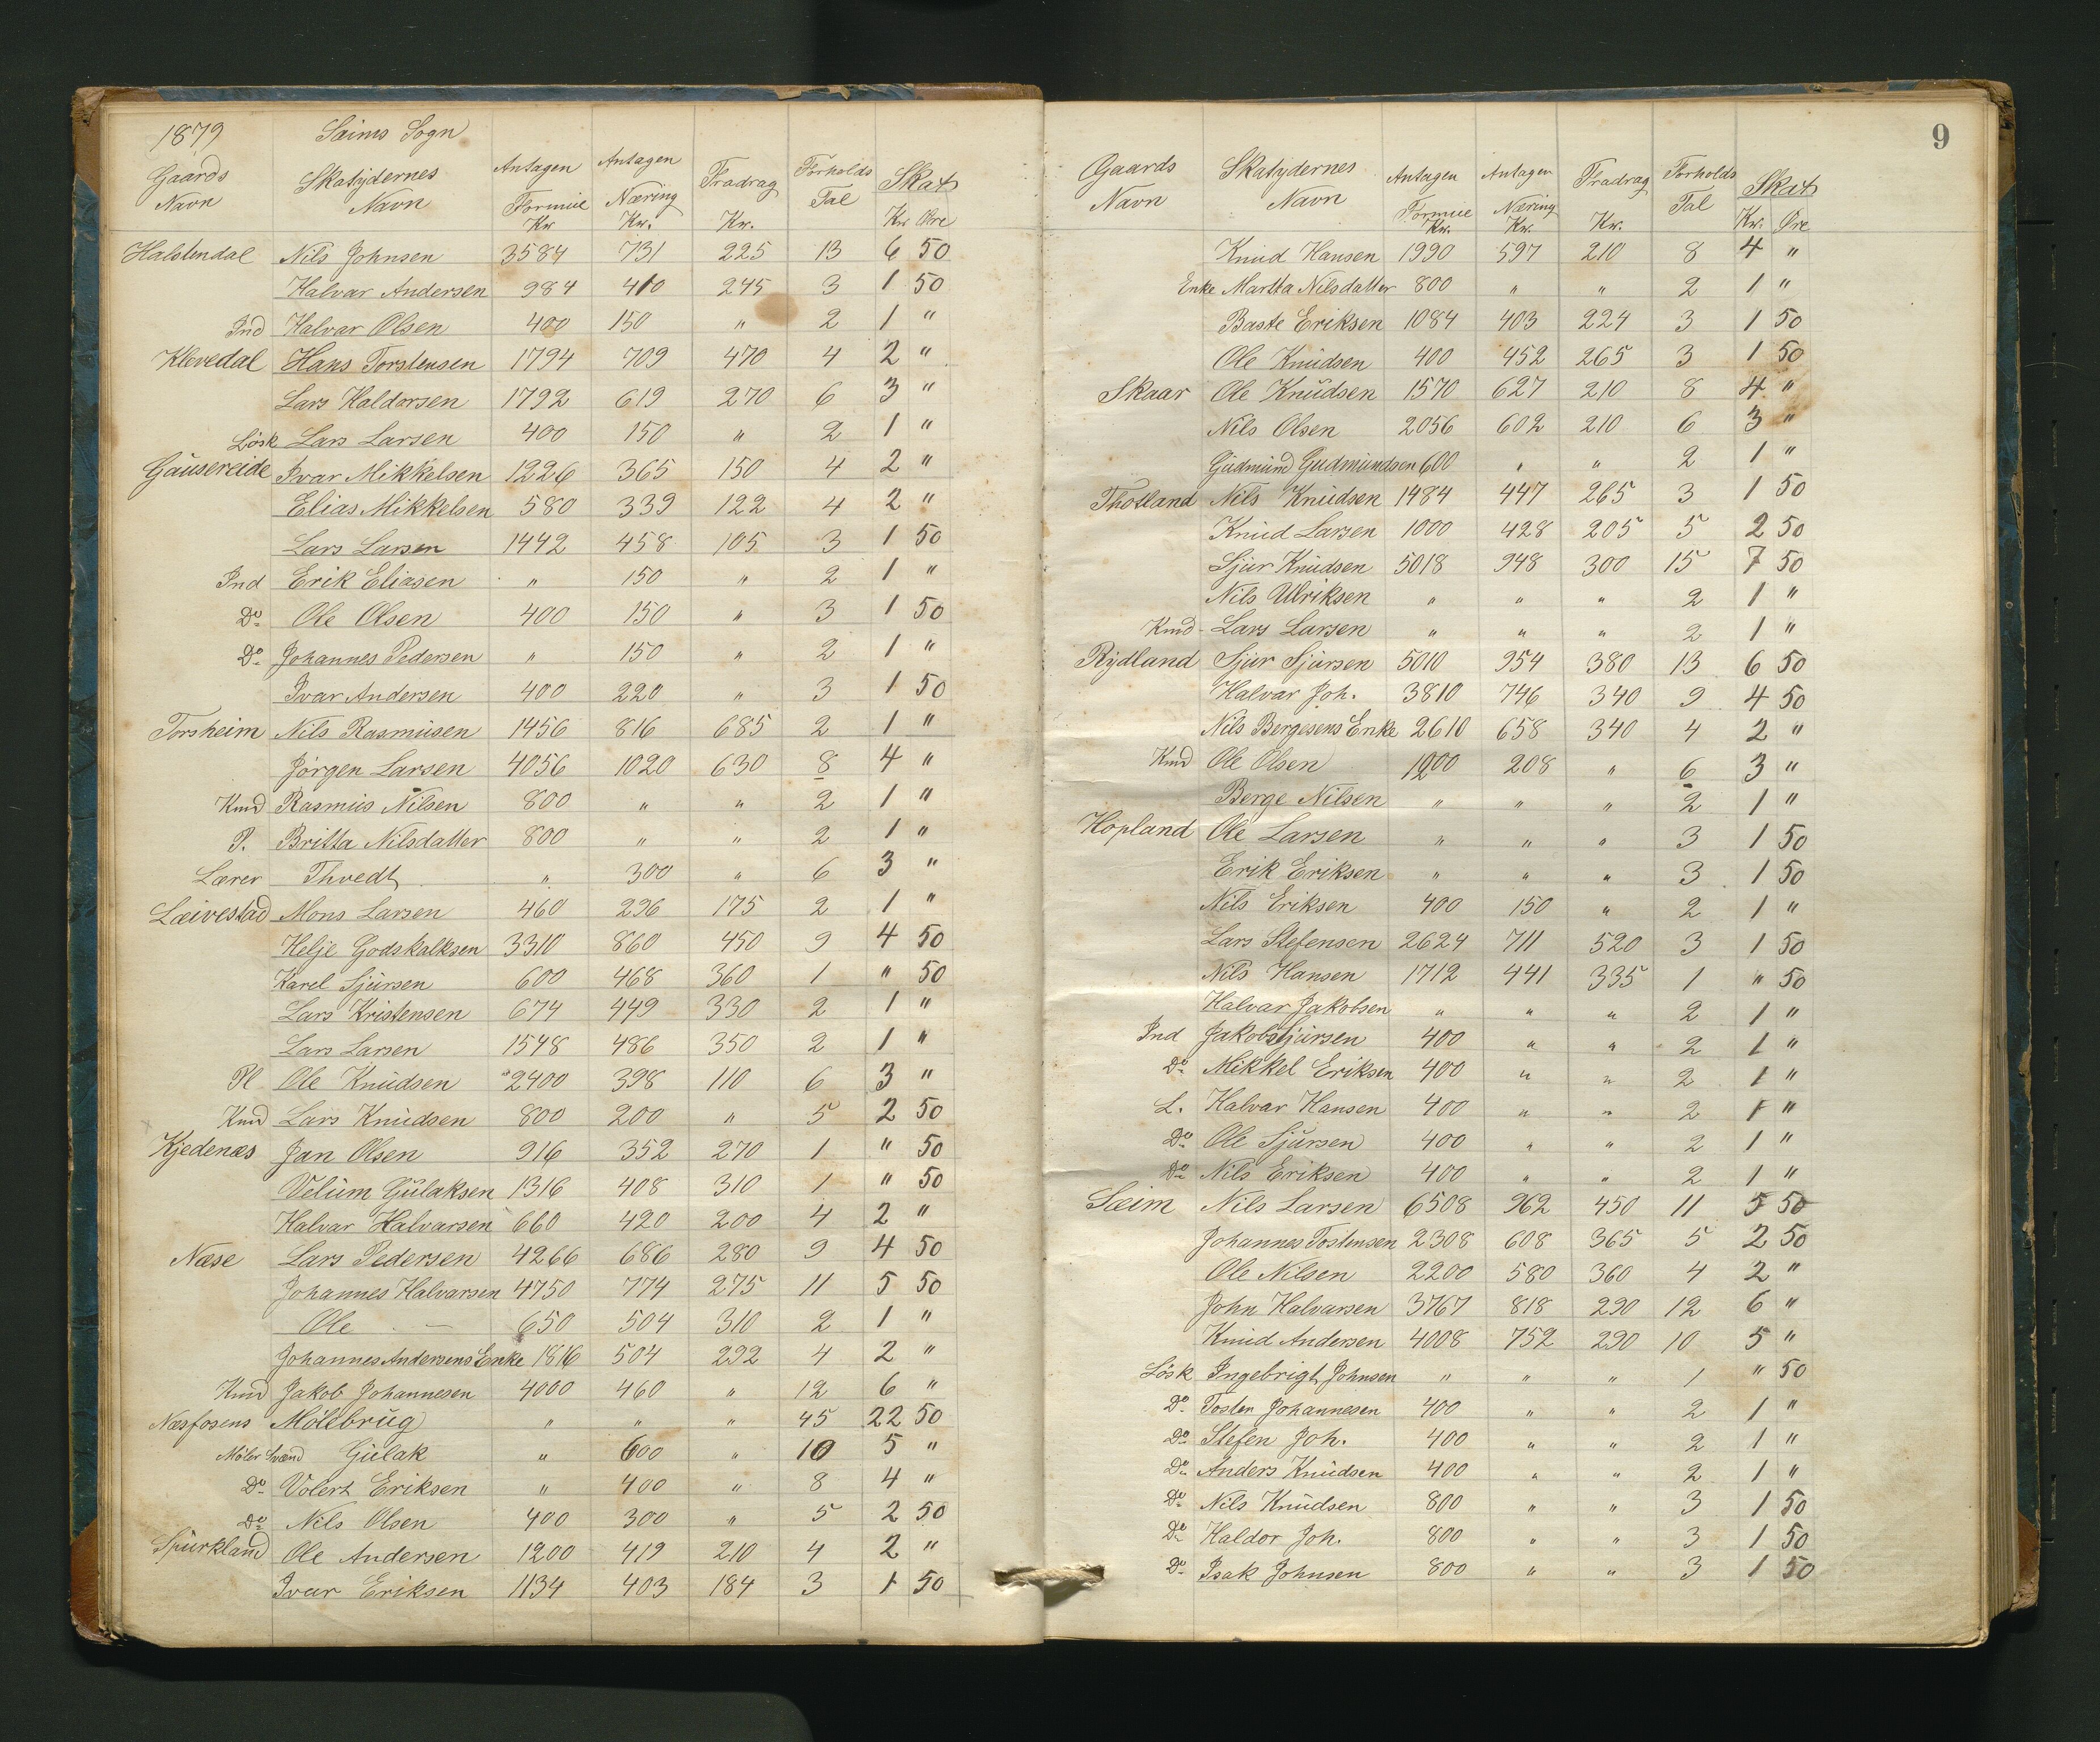 1879 Sæims Sogn
Gaards Navn Skatydernes Navn Antagen Formue Kr Antagen Næring Kr. Fradrag Kr. Forholds Tal Skat Kr Øre
Halstendal Nils Johnsen 3584 731 225 13 6 50
Halvar Andersen 984 410 245 3 1 50
Ind Halvar Olsen 400 150 " 2 1 "
Klevedal Hans Torstensen 1794 709 470 4 2 "
Lars Haldorsen 1792 619 270 6 3 "
Lösk Lars Larsen 400 150 " 2 1 "
Gausereide Ivar Mikkelsen 1226 365 150 4 2 "
Elias Mikkelsen 580 339 122 4 2 "
Lars Larsen 1442 458 105 3 1 50
Ind Erik Eliasen " 150 " 2 1 "
Do Ole Olsen 400 150 " 3 1 50
Do Johannes Pedersen " 150 " 2 1 "
Ivar Andersen 400 220 " 3 1 50
Torsheim Nils Rasmusen 1456 816 685 2 1 "
Jörgen Larsen 4056 1020 630 8 4 "
Kmd Rasmus Nilsen 800 " " 2 1 "
P. Britta Nilsdatter 800 " " 2 1 "
Lærer Thvedt " 300 " 6 3 "
Læivestad Mons Larsen 460 296 175 2 1 "
Helje Godskalksen 3310 860 450 9 4 50
Karel Sjursen 600 468 360 1 " 50
Lars Kristensen 674 449 330 2 1 "
Lars Larsen 1548 486 350 2 1 "
Pl Ole Knudsen 2400 398 110 6 3 "
Kmd Lars Knudsen 800 200 " 5 2 50
Kjedenæs Jan Olsen 916 352 270 1 " 50
Velum Gulaksen 1316 408 310 1 " 50
Halvar Halvarsen 660 420 200 4 2 "
Næse Lars Pedersen 4266 686 280 9 4 50
Johannes Halvarsen 4750 774 275 11 5 50
Ole — 650 504 310 2 1 "
Johannes Andersens Enke 1816 504 292 4 2 "
Kmd Jakob Johannesen 4000 460 " 12 6 "
Næsfosens Möllebrug " " " 45 22 50
Möler Svænd Gulak " 600 " 10 5 "
Do Volert Eriksen " 400 " 8 4 "
Do Nils Olsen 400 300 " 5 2 50
Spurkland Ole Andersen 1200 419 210 4 2 "
Ivar Eriksen 1134 403 184 3 1 50
9
Gaards Navn Skatydernes Navn Antagen Formue Kr. Antagen Næring Kr. Fradrag Kr. Forholds Tal Skat Kr. Øre
Knud Hansen 1990 597 210 8 4 "
Enke Martta Nilsdatter 800 " " 2 1 "
Baste Eriksen 1084 403 224 3 1 50
Ole Knudsen 400 452 265 3 1 50
Skaar Ole Knudsen 1570 627 210 8 4 "
Nils Olsen 2056 602 210 6 3 "
Gudmund Gudmundsen 600 " " 2 1 "
Thotland Nils Knudsen 1484 447 265 3 1 50
Knud Larsen 1000 428 205 5 2 50
Sjur Knudsen 5018 948 300 15 7 50
Nils Ullriksen " " " 2 1 "
Kmd Lars Larsen " " " 2 1 "
Rydland Sjur Sjursen 5010 954 380 13 6 50
Halvar Joh. 3810 746 340 9 4 50
Nils Bergesens Enke 2610 658 340 4 2 "
Kmd Ole Olsen 1200 208 " 6 3 "
Berge Nilsen " " " 2 1 "
Hopland Ole Larsen " " " 3 1 50
Erik Eriksen " " " 3 1 50
Nils Eriksen 400 150 " 2 1 "
Lars Stefensen 2624 711 520 3 1 50
Nils Hansen 1712 441 335 1 " 50
Halvar Jakobsen " " " 2 1 "
Ind Jakob Sjursen 400 " " 2 1 "
Do Mikkel Eriksen 400 " " 2 1 "
L. Halvar Hansen 400 " " 2 1 "
Do Ole Sjursen 400 " " 2 1 "
Do Nils Eriksen 400 " " 2 1 "
Sæim Nils Larsen 6508 962 450 11 5 50
Johannes Tostensen 2308 608 365 5 2 50
Ole Nilsen 2200 580 360 4 2 "
John Halvarsen 3767 818 290 12 6 "
Knud Andersen 4008 752 290 10 5 "
Lösk Ingebrigt Johnsen " " " 1 " 50
Do Tosten Johannesen 400 " " 2 1 "
Do Stefen Joh. 400 " " 2 1 "
Do Anders Knudsen 400 " " 2 1 "
Do Nils Knudsen 800 " " 3 1 50
Do Haldor Joh. 800 " " 3 1 50
Do Isak Johnsen 800 " " 3 1 50